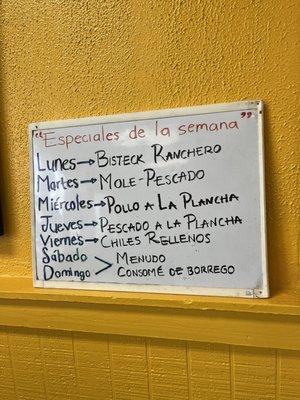 "Especiales de la semana"
Lunes → Bisteck Ranchero
Martes → Mole-Pescado
Miércoles → Pollo a La Plancha
Jueves → Pescado a la Plancha
Viernes → Chiles Rellenos
Sábado > Menudo
Domingo Consomé de Borrego